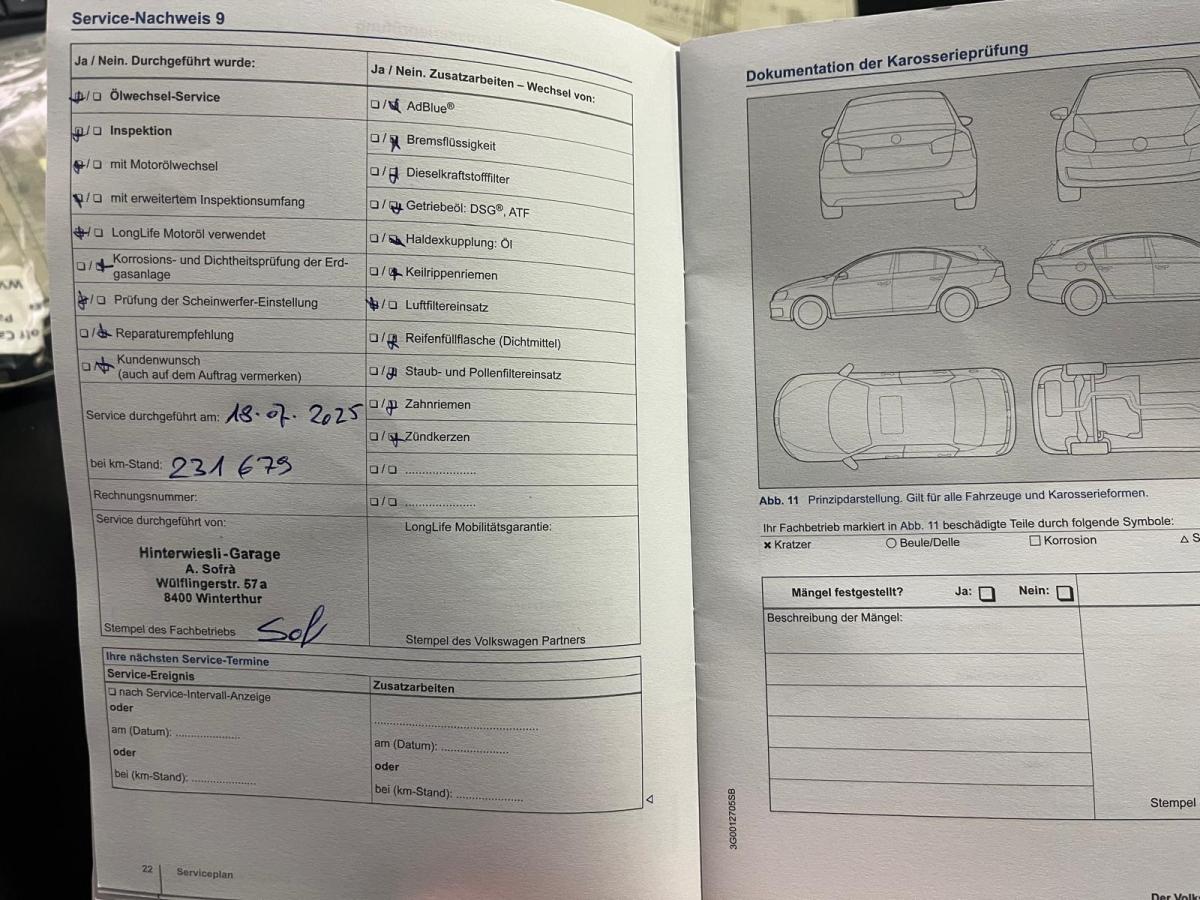 Service-Nachweis 9
Ja / Nein. Durchgeführt wurde:
❑ / ❑ Ölwechsel-Service
❑ / ❑ Inspektion
❑ / ❑ mit Motorölwechsel
❑ / ❑ mit erweitertem Inspektionsumfang
❑ / ❑ LongLife Motoröl verwendet
❑ / ❑ Korrosions- und Dichtheitsprüfung der Erd-
gasanlage
❑ / ❑ Prüfung der Scheinwerfer-Einstellung
❑ / ❑ Reparaturempfehlung
❑ / ❑ Kundenwunsch
(auch auf dem Auftrag vermerken)
Service durchgeführt am: 18.07.2025
bei km-Stand: 231 679
Rechnungsnummer:
Service durchgeführt von:
Hinterwiesli-Garage
A. Sofrà
Wülflingerstr. 57a
8400 Winterthur
Stempel des Fachbetriebs
Ja / Nein. Zusatzarbeiten – Wechsel von:
❑ / ❑ AdBlue®
❑ / ❑ Bremsflüssigkeit
❑ / ❑ Dieselkraftstofffilter
❑ / ❑ Getriebeöl: DSG®, ATF
❑ / ❑ Haldexkupplung: Öl
❑ / ❑ Keilrippenriemen
❑ / ❑ Luftfiltereinsatz
❑ / ❑ Reifenfüllflasche (Dichtmittel)
❑ / ❑ Staub- und Pollenfiltereinsatz
❑ / ❑ Zahnriemen
❑ / ❑ Zündkerzen
❑ / ❑ ......................
❑ / ❑ ......................
LongLife Mobilitätsgarantie:
Stempel des Volkswagen Partners
Ihre nächsten Service-Termine
Service-Ereignis
❑ nach Service-Intervall-Anzeige
oder
am (Datum): ....................
oder
bei (km-Stand): ....................
Zusatzarbeiten
..................................................
am (Datum): ....................
oder
bei (km-Stand): ....................
22 Serviceplan
Dokumentation der Karosserieprüfung
Abb. 11 Prinzipdarstellung. Gilt für alle Fahrzeuge und Karosserieformen.
Ihr Fachbetrieb markiert in Abb. 11 beschädigte Teile durch folgende Symbole:
✖ Kratzer ○ Beule/Delle □ Korrosion △ S
Mängel festgestellt? Ja: ❑ Nein: ❑
Beschreibung der Mängel:
Stempel
3G0012705SB
Der Volks